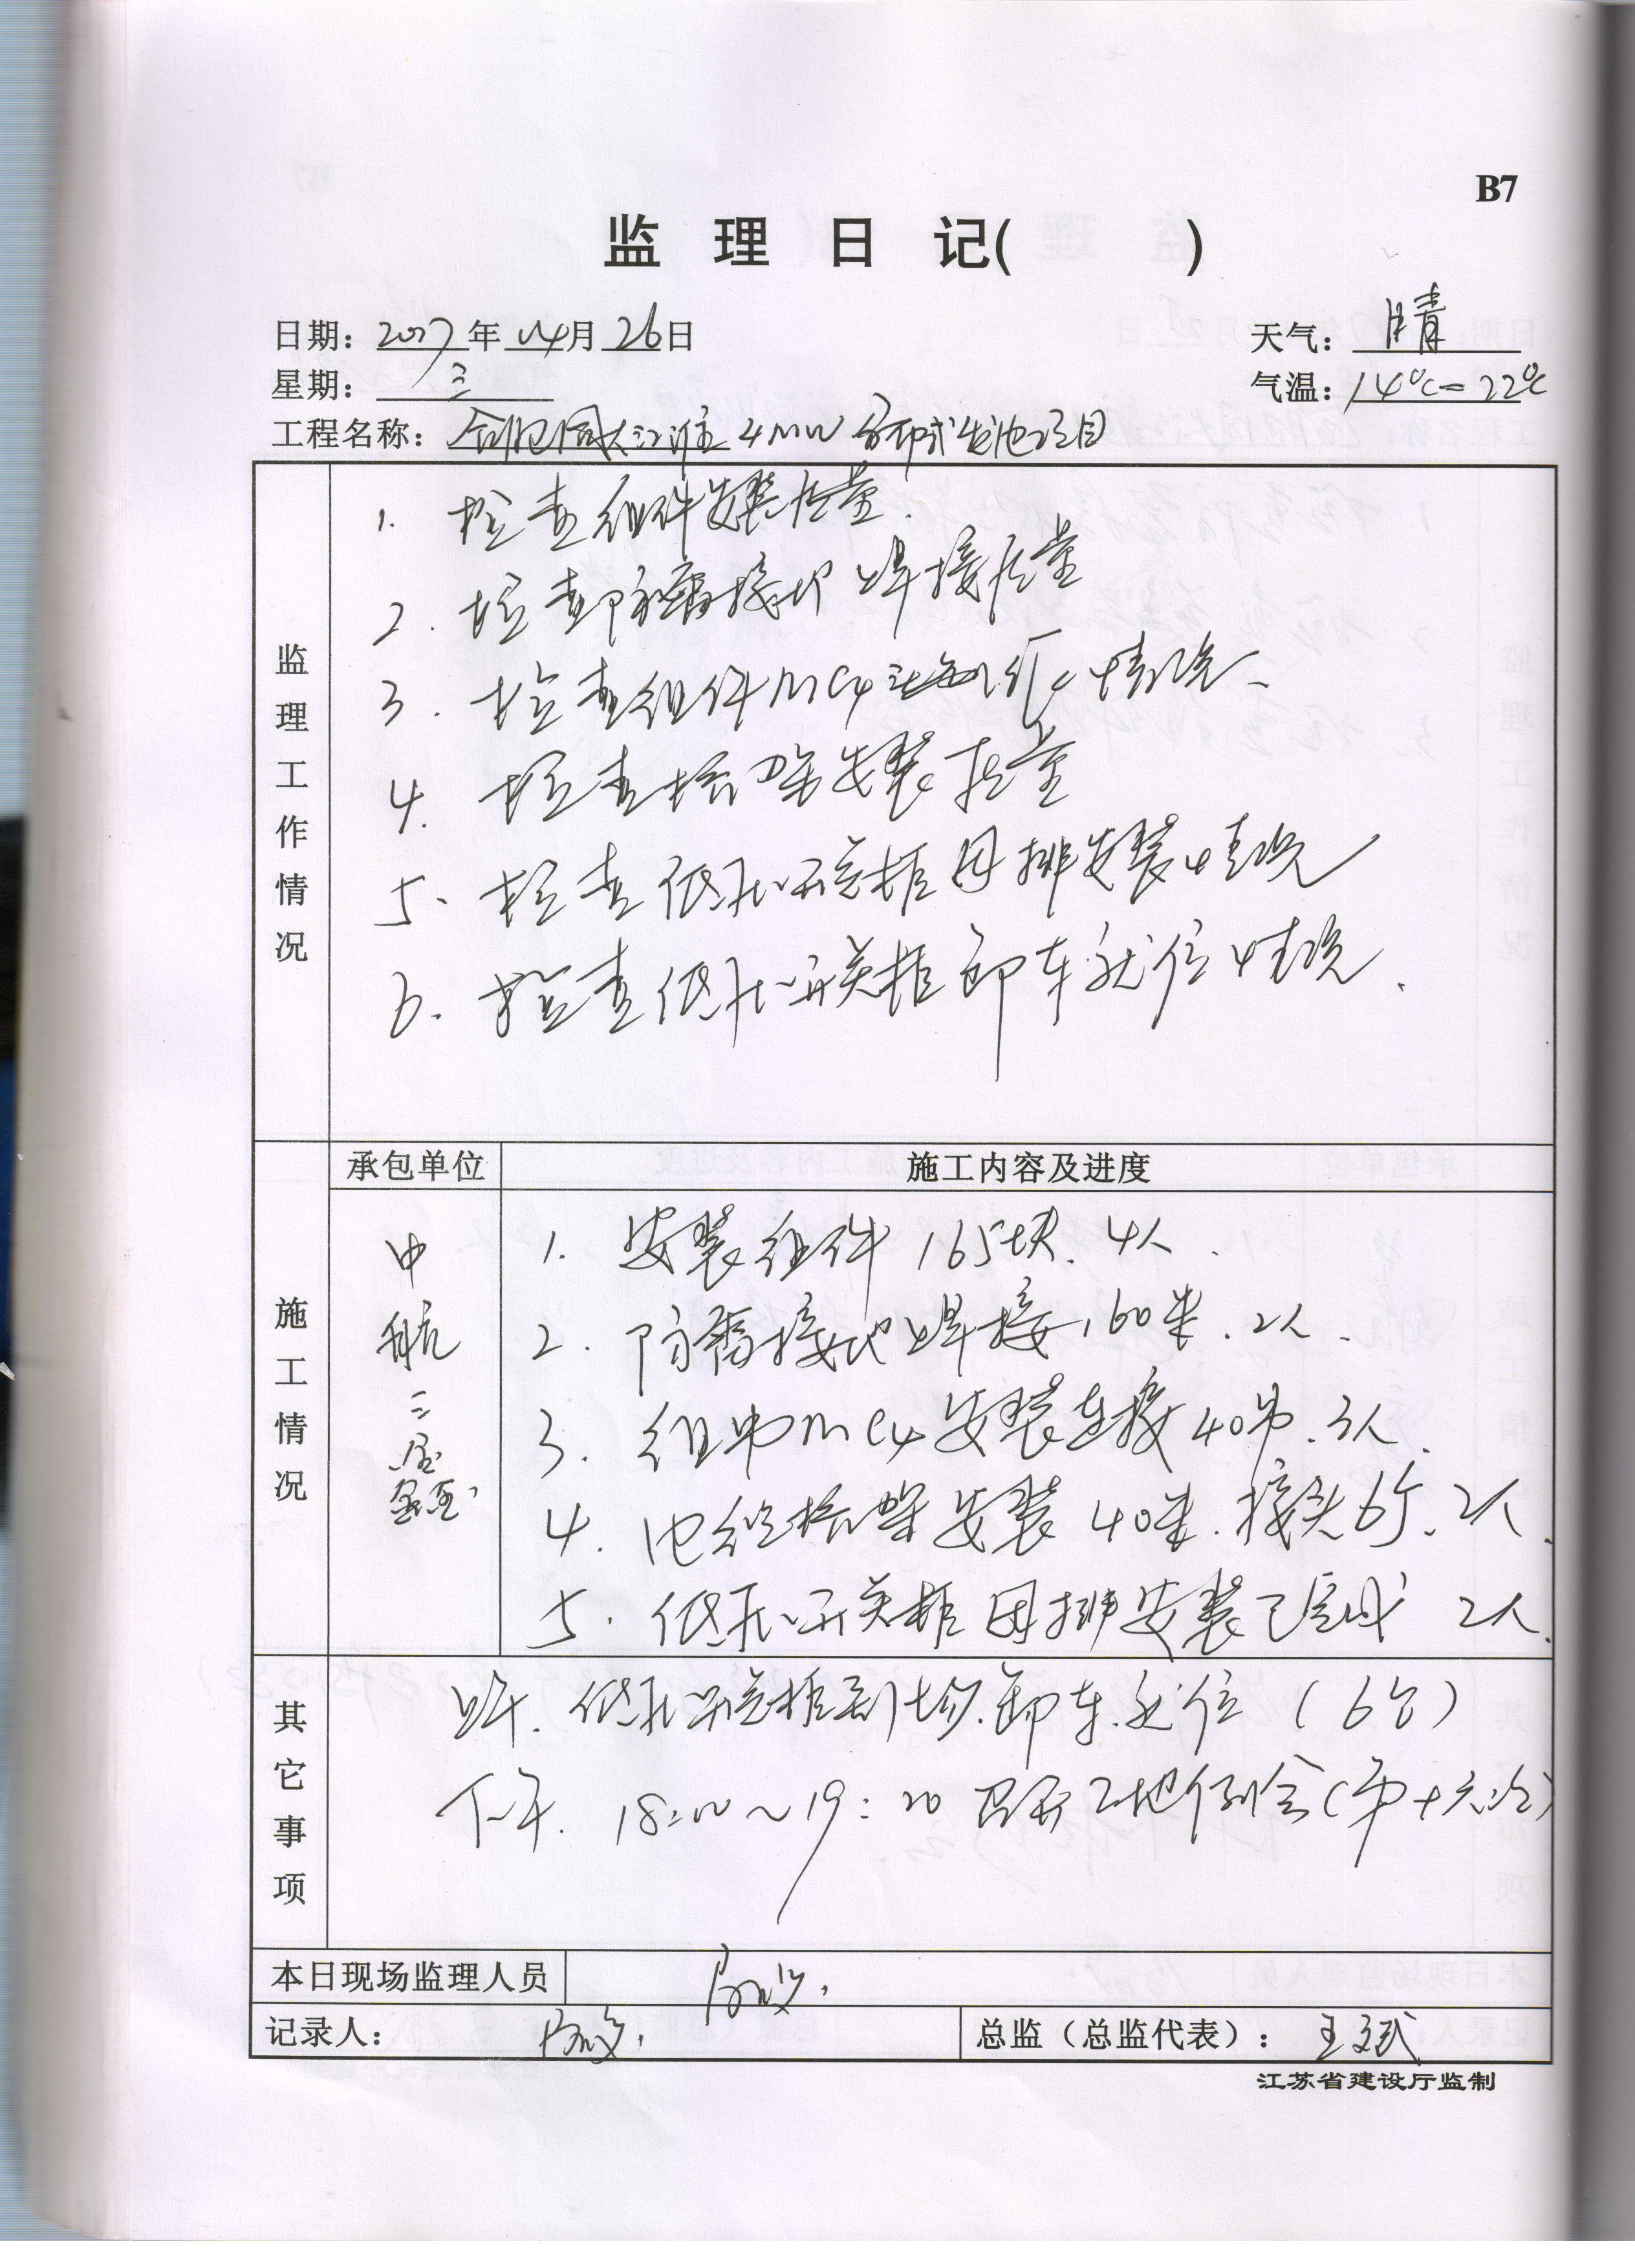 B7
监理日记( )
日期：2017年04月26日
天气：晴
星期：三
气温：14℃-22℃
工程名称：合肥同大江淮4MW分布式发电项目
监理工作情况
1. 检查组件安装质量.
2. 检查防雷接地焊接质量
3. 检查组件MC4 情况
4. 检查桥架安装质量
5. 检查低压开关柜母排安装情况
6. 检查低压开关柜卸车就位情况.
承包单位
施工内容及进度
施工情况
中航三鑫
1. 安装组件165块. 4人.
2. 防雷接地焊接160米. 2人.
3. 组串MC4安装连接40串. 3人.
4. 电缆桥架安装40米. 接头6个. 2人.
5. 低压开关柜母排安装已完成 2人.
其它事项
上午. 低压开关柜到场.卸车.就位（6台）
下午. 18:00～19:20召开工地例会(第十六次)
本日现场监理人员
记录人：
总监（总监代表）：王斌
江苏省建设厅监制